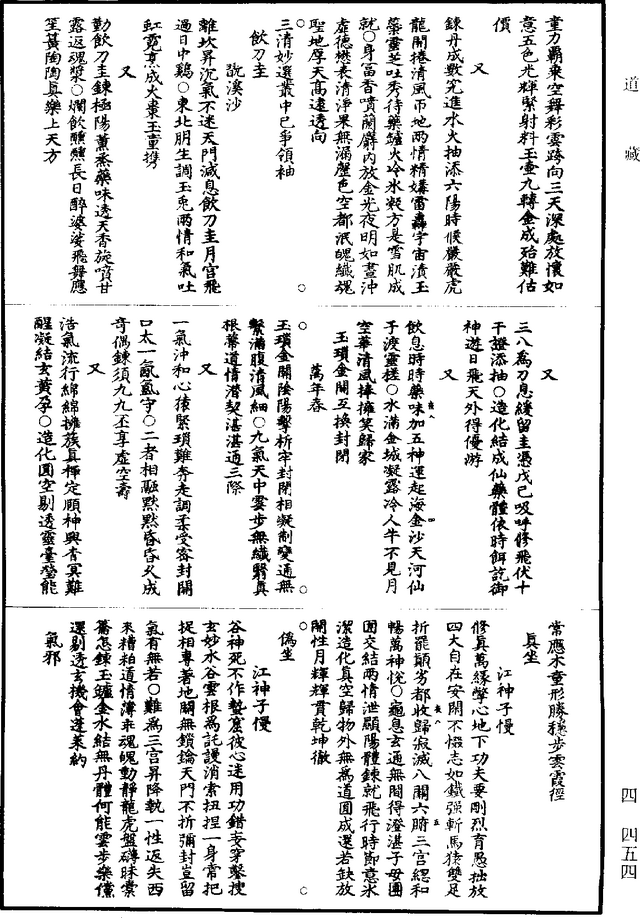 道藏
童力霸乘空舞彩雲踏向三天深處放懷如
意五色光輝緊射料玉壺九轉金成殆難估
價
又
鍊丹成數究進水火抽添六陽時候嚴嚴虎
龍開捲清風帀地兩情精媾雷轟宇宙漬玉
藥靈芝吐秀待藥爐火冷氷凝方是雪肌成
就○身畐香噴蘭麝內放金光夜明如晝沖
虛德懋表清淨果無漏聲色空都泯魄織魂
聖地厚天高遠透向
三清妙選叢中已爭領袖
飲刀圭
翫溪沙
離坎昇沉氣不迷天門減息飲刀圭月宮飛
過日中鷄○東北朋生調玉兎兩情和氣吐
虹霓烹成火棗玉童携
又
勤飲刀圭鍊極陽薰蒸藥味透天香旋噴甘
露返魂漿○爛飲醺醺長日醉婆娑飛舞應
笙簧陶陶真樂上天方
又
三八為刀息緩留圭憑戊己吸呼修飛伏十
干證添抽○造化結成仙藥體依時餌訖御
神遊日飛天外得優游
又
飲息時時藥味加五神運起海金沙天河仙
子渡靈槎○水滿金城凝露冷人牛不見月
空華清風捧擁笑歸家
玉瑣金關互換封閉
萬年春
玉瑣金關陰陽擊析牢封閉相凝制變通無
繫滿腹清風細○九氣天中雲步無纖翳真
根蔕道情潛契湛湛通三際
又
一氣沖和心猿緊瑣難奔走調柔受密封關
口太一氤氳守○二者相融默默昏昏久成
奇偶鍊須九九丕享虛空壽
又
浩氣流行綿綿擁蔟真禪定頤神興杳冥難
醒凝結玄黃孕○造化圓空剔透靈臺瑩能
常應木童形勝穩步雲霞徑
真坐
江神子慢
修真萬緣弊心地下功夫要剛烈育愚拙放
四大自在安閑不惙志如鐵强斬馬猿雙足
折罷顛劣都收歸寂滅八關六腑三宮緦和
暢萬神悅○龜息玄通無間得澄湛子母團
圓交結兩情泄顯陽體鍊就飛行時節意氷
潔造化真空歸物外無為道圓成選若缺放
閑性月輝輝貫乾坤徹
偽坐
江神子慢
谷神死不作蟄塞彼心迷用功錯妄穿鑿搜
玄妙水谷雲根為託謾消索扭捏一身常把
捉相專著地關無鎖鑰天門不折彌封豈留
氣有無若○難為三宮昇降執一性返失西
來糟粕道情薄来魂魄動靜龍虎盤礴昧棠
籥怎鍊玉爐金水結無丹體何能雲步樂儻
還剔透玄機會蓬萊約
氣邪
四 四五四